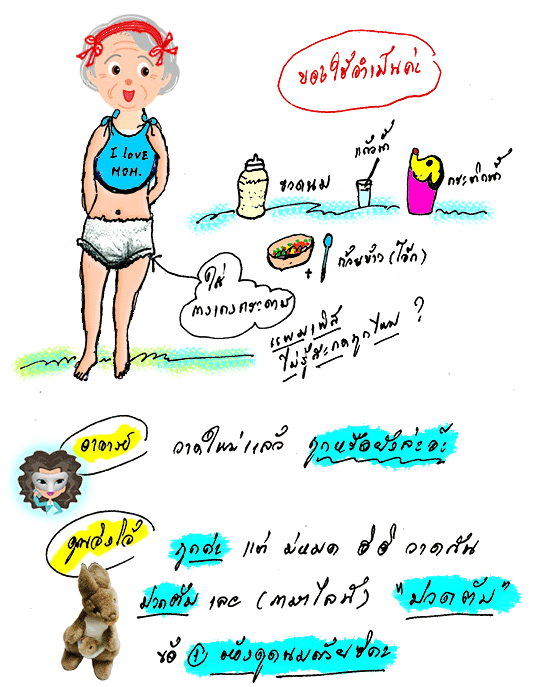 ของใช้จำเป็นค่ะ
I love
MOM.
ขวดนม
แก้วน้ำ
กระติกน้ำ
ถ้วยข้าว (โจ๊ก)
+
ใส่
กางเกงกระดาษ
แพมเพิส
ไม่รู้สะกดถูกไหม ?
อาจารย์
วาดใหม่แล้ว ถูกหรือยังล่ะอ๊ะ
คุณจิงโจ้
ถูกค่ะ แต่
วาดกัน
และ
ข้อ ① ต้องดูดนมด้วยซิคะ